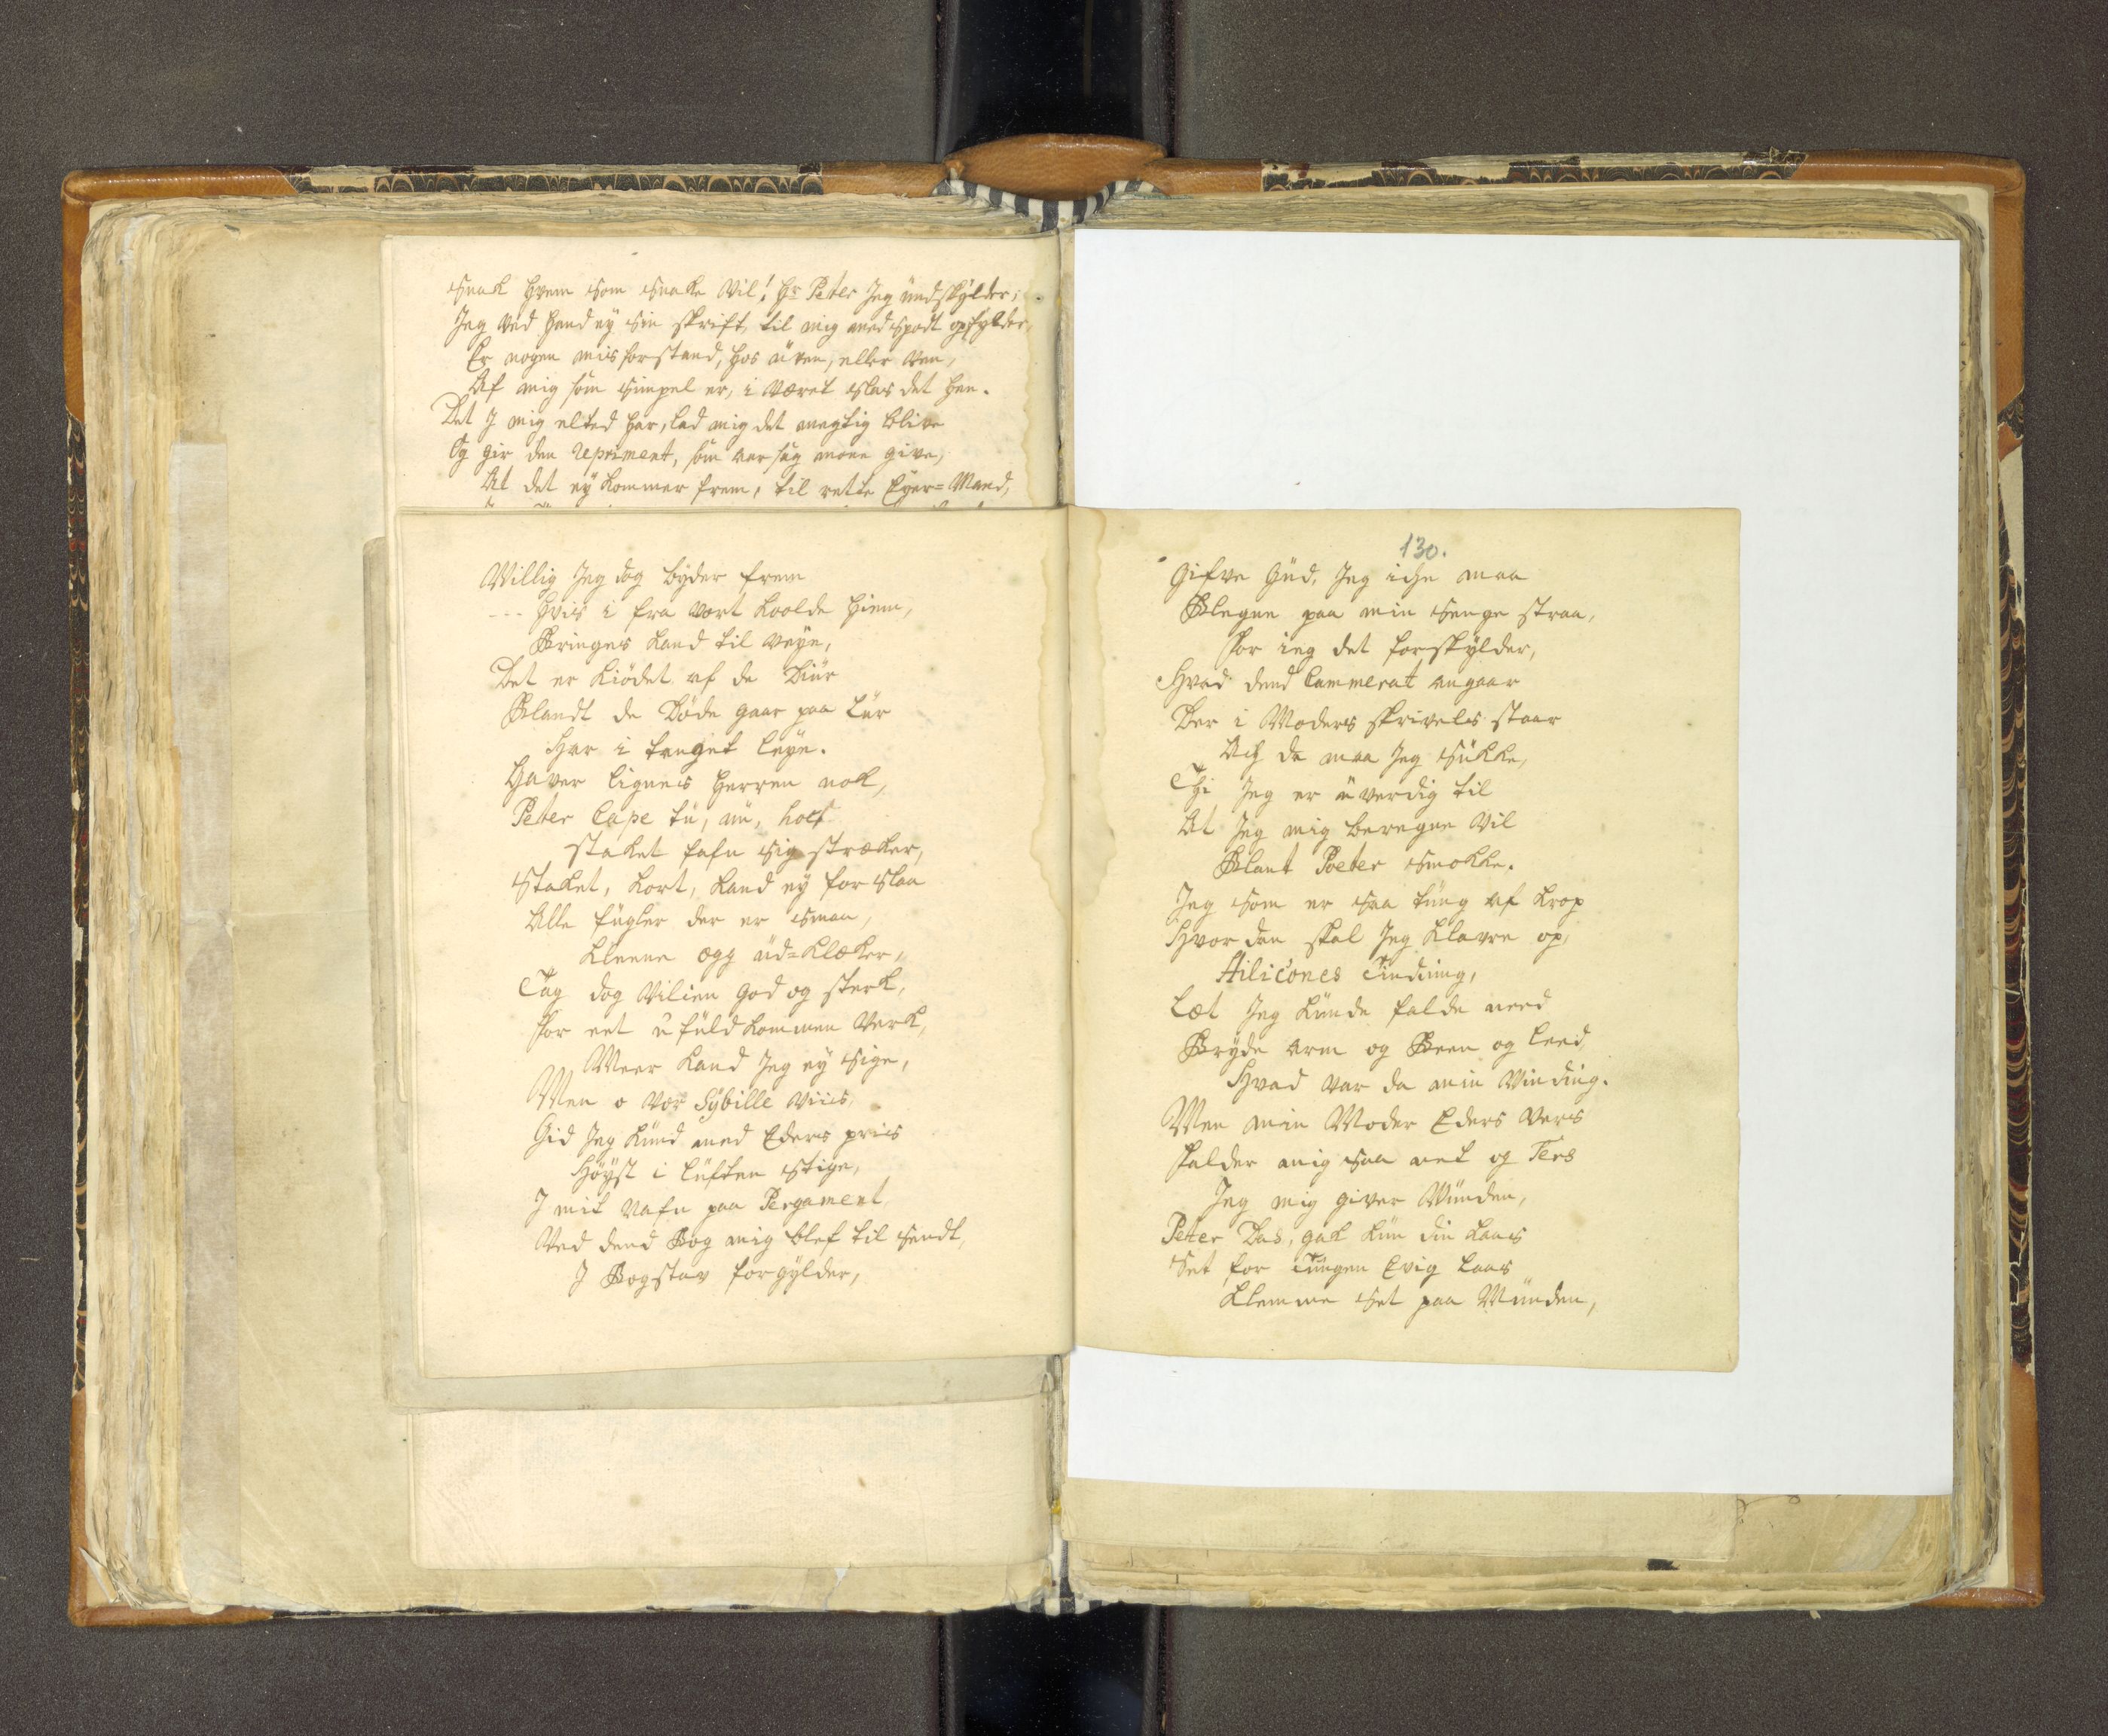 Snak hvem som snake vil! Hr Peter Jeg undskÿlder;
Jeg ved hand eÿ sin skrift til mig med spodt opfylder,
Er nogen misforstand, hos uven, eller ven,
Af mig som simpel er, i været slas det hen.
Det J mig elted har, lad mig det megtig blive
Og gir den repriment, som aarsag mone give,
At det eÿ kommer frem, til rette Eÿer=Mand,
Willig Jeg dog bÿder frem
--- hvis i fra vort koolde hiem,
Bringes kand til veÿe,
Det er kiödet af de Diür
Blandt de Döde gaar paa Lur
Har i tanget leÿe.
Haver lignes herren nok,
Peter Cape tu, nu, hoc
staket fafn sig stræker,
Staket, kort, kand eÿ forslaa
Alle fugler der er smaa,
kleene egg ud=klæker,
Tag dog Vilien god og sterk,
for eet ufuldkommen Verk,
Meer kand Jeg eÿ sige,
Men o vor Sÿbille viis,
Gid Jeg kund med Eders priis
Höÿst i luften stige,
J mit nafn paa Pergament
Ved dend Bog mig blef til sendt,
J Bogstav forgÿlder,
130.
Gifve Gud, Jeg iche maa
Blegne paa min senge straa,
for ieg det forskÿlder,
Hvad dend Cammerat angaar
Der i Moders skrivels staar
Ach da maa Jeg sukke,
Thi Jeg er uverdig til
At Jeg mig beregne vil
Blant Poeter smokke.
Jeg som er saa tung af krop
Hvordan skal Jeg klavre op,
Hilicones Tinding,
Læt Jeg kunde falde need
Brÿde arm og Been og leed
Hvad var da min Vinding.
Men min Moder Eders vers
falder mig saa net og Ters
Jeg mig giver Wunden,
Peter Das, gak kun din kaas
Set for Tungen Evig laas
klemme set paa Munden,